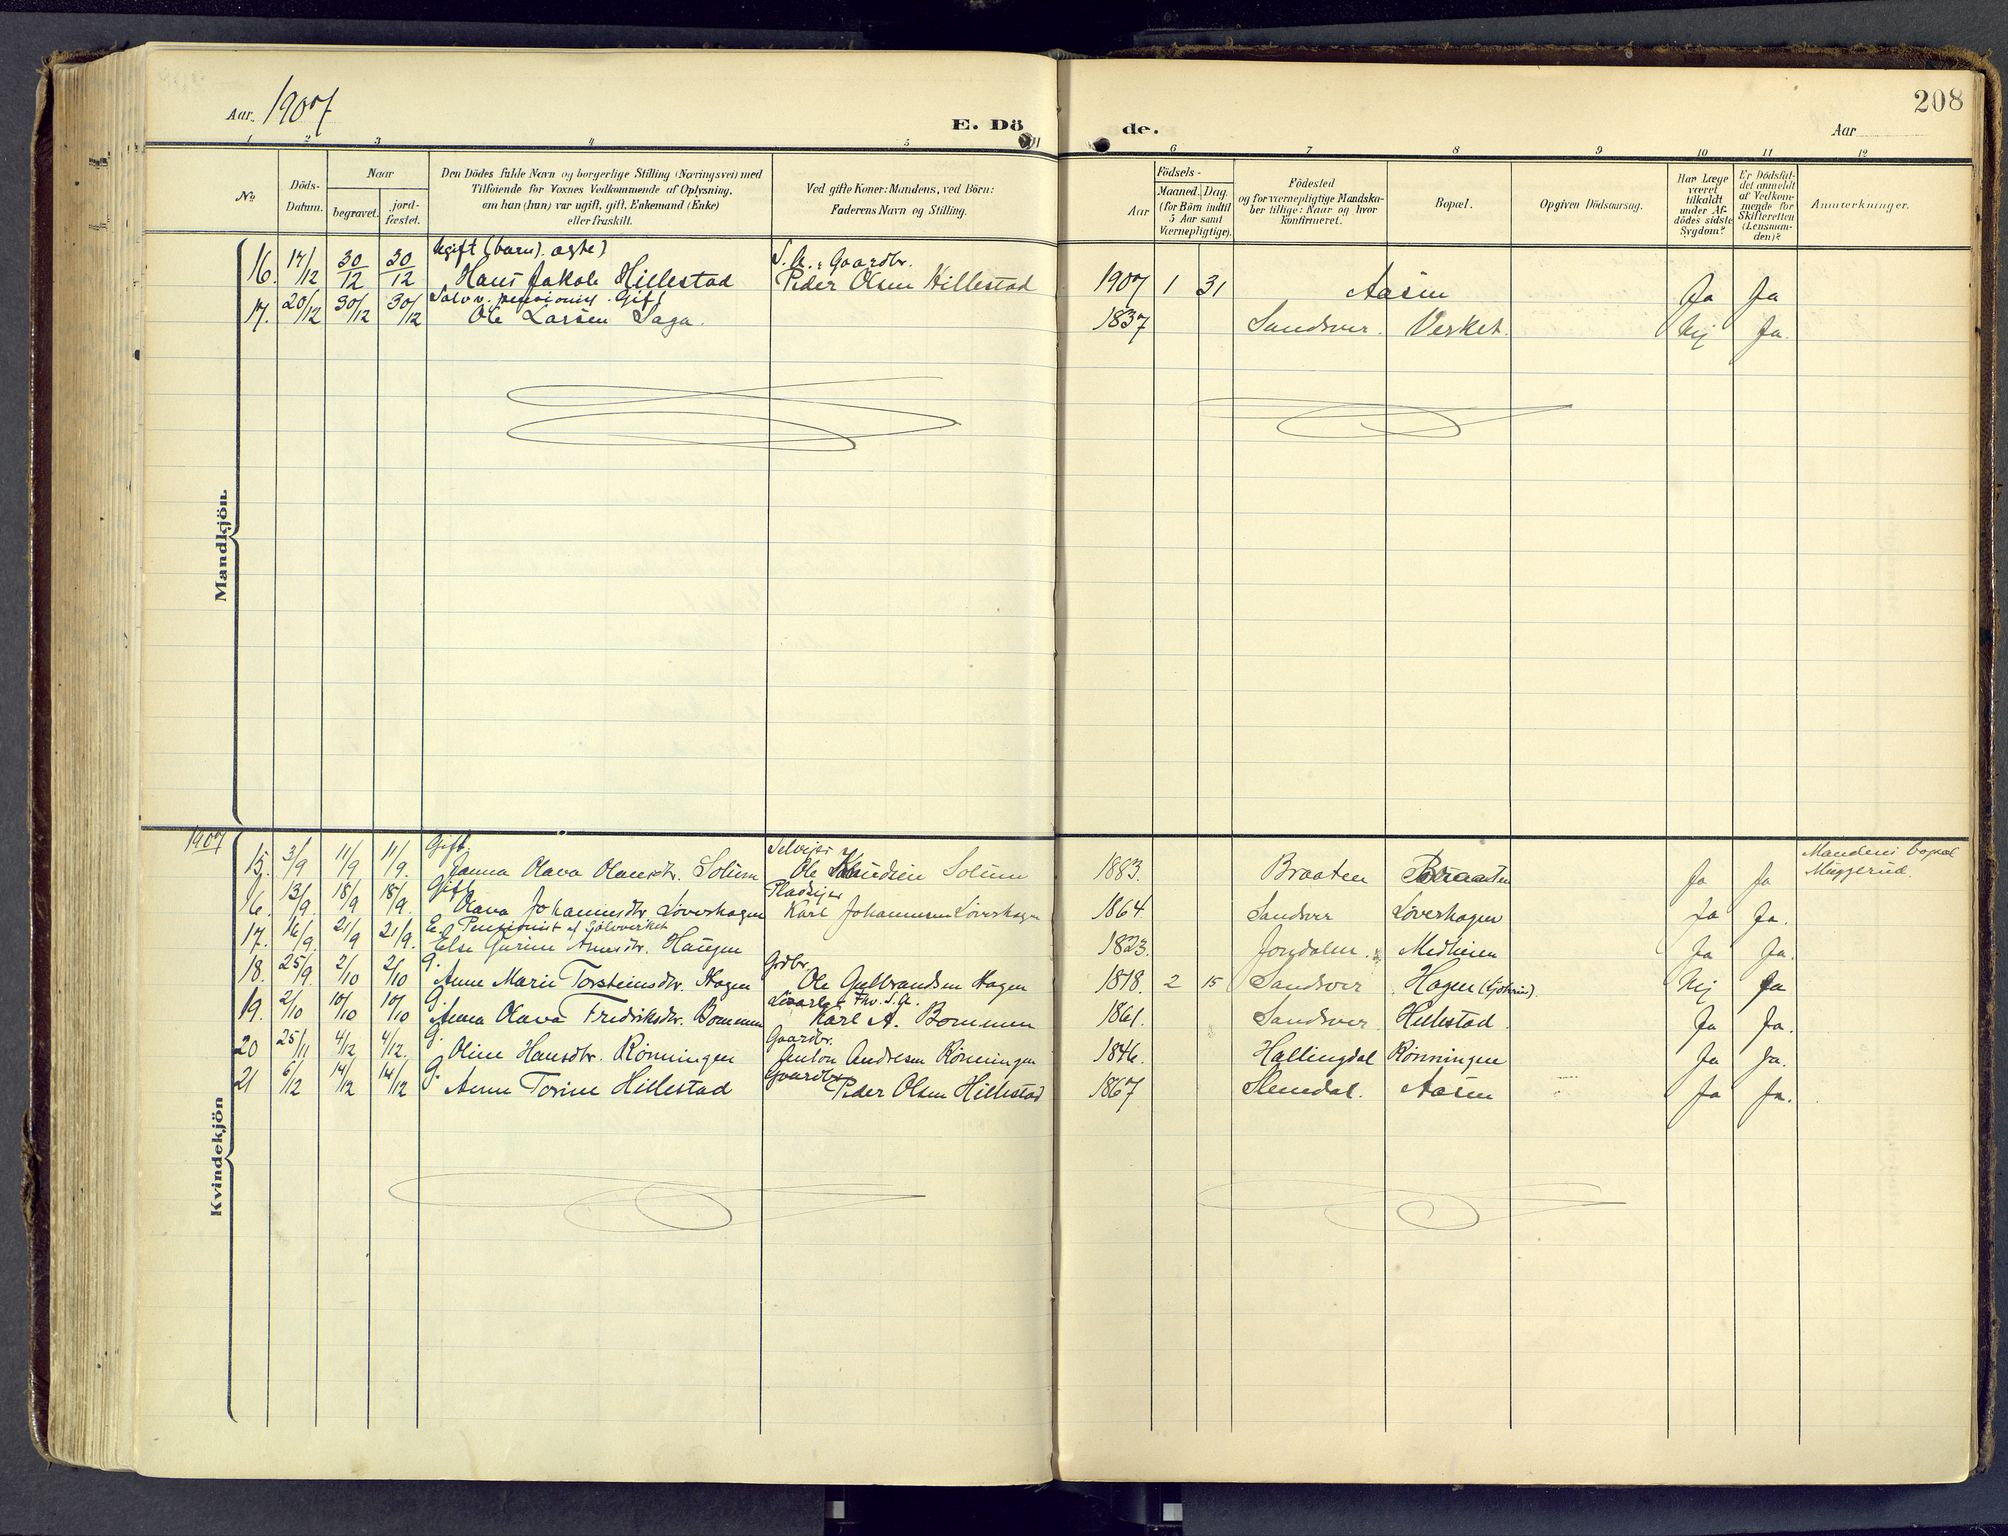 208
Aar. 1907
E. Dö de.
Aar
1 2 3 4 5 6 7 8 9 10 11 12
No
Döds-Datum.
Naar
begravet.
jord-fæstet.
Den Dödes fulde Navn og borgerlige Stilling (Næringsvei) med
Tilföiende for Voxnes Vedkommende af Oplysning,
om han (hun) var ugift, gift, Enkemand (Enke)
eller fraskilt.
Ved gifte Koner: Mandens, ved Börn:
Faderens Navn og Stilling.
Födsels-
Aar
Maaned. Dag.
(for Börn indtil
5 Aar samt
Værnepligtige).
Födested
og for værnepligtige Mandska-
ber tillige: Naar og hvor
konfirmeret.
Bopæl.
Opgiven Dödsaarsag.
Har Læge
været
tilkaldt
under Af-
dödes sidste
Sygdom?
Er Dödsfal-
det anmeldt
af Vedkom-
mende for
Skifteretten
(Lensman-
den)?
Anmærkninger.
Mandkjön.
Ugift (barn), ægte) S. A.: Gaardbr.
16. 17/12 30/12 30/12 Hans Jakob Hillestad Peder Olsen Hillestad 1907 1 31 Aasen Ja Ja
Sølvv. pensionist. Gift
17. 20/12 30/12 30/12 Ole Larsen Saga. 1837 Sandsver. Verket. Nej Ja.
Kvindekjön
1907
Gift. Selvejer Mandens bopæl
15. 3/9 11/9 11/9. Janna Olava Olausdtr. Solum Ole Solum 1883. Braaten Braaten Ja Ja Muggerud.
Gift Pladsejer
16. 13/9. 18/9 18/9. Olava Johannesdtr. Løverhagen Karl Johannesen Løverhagen 1864. Sandsver Løverhagen Ja Ja.
E. Pensionist af Sølvverket
17. 16/9. 21/9 21/9. Else Gurine Arnesdtr. Haugen 1823. Jondalen. Medheien Ja Ja.
G. Grdbr.
18. 25/9. 2/10 2/10 Anne Marie Torsteinsdtr. Hagen Ole Gulbrandsen Hagen 1818. 2 15 Sandsver Hagen Nej Ja
G. Fhv. S. A.
19. 2/10 10/10 10/10 Anna Olava Fredriksdtr. Bommen Karl A. Bommen 1861. Sandsver. Hillestad. Ja Ja.
G. Gaardbr.
20 25/11 4/12 4/12. Oline Hansdtr. Rønningen Anton Andresen Rønningen 1846. Hallingdal Rønningen Ja Ja.
G. Gaardbr.
21 6/12 14/12 14/12 Anne Torine Hillestad Peder Olsen Hillestad 1867 Slemdal. Aasen Ja Ja.